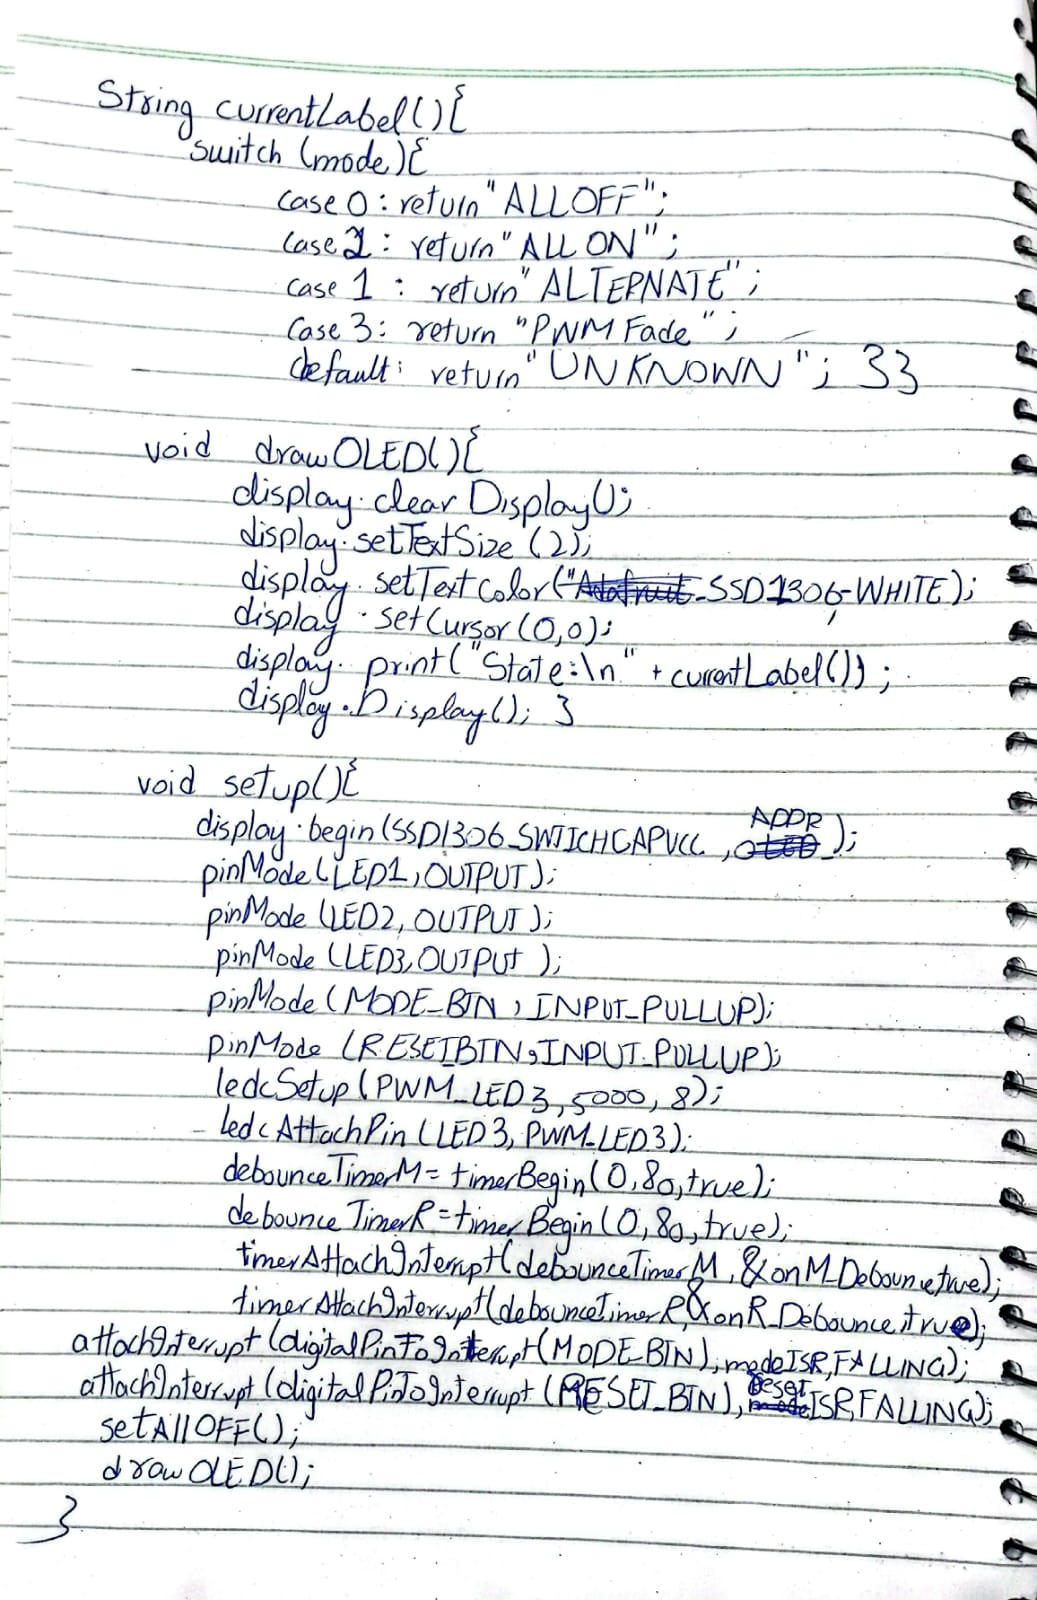 String currentLabel(){
switch (mode){
case 0: return "ALL OFF";
case 2: return "ALL ON";
case 1: return "ALTERNATE";
case 3: return "PWM Fade";
default: return "UNKNOWN"; }}
void drawOLED(){
display.clearDisplay();
display.setTextSize(2);
display.setTextColor("Adafruit_SSD1306_WHITE);
display.setCursor(0,0);
display.print("State:\n" + currentLabel());
display.Display(); }
void setup(){
display.begin(SSD1306_SWITCHCAPVCC, OLED_ADDR);
pinMode(LED1, OUTPUT);
pinMode(LED2, OUTPUT);
pinMode(LED3, OUTPUT);
pinMode(MODE_BTN, INPUT_PULLUP);
pinMode(RESETBTN, INPUT_PULLUP);
ledcSetup(PWM_LED3, 5000, 8);
ledcAttachPin(LED3, PWM_LED3);
debounceTimerM = timerBegin(0, 80, true);
debounceTimerR = timerBegin(0, 80, true);
timerAttachInterrupt(debounceTimerM, &onM_Debounce, true);
timerAttachInterrupt(debounceTimerR, &onR_Debounce, true);
attachInterrupt(digitalPinToInterrupt(MODE_BTN), modeISR, FALLING);
attachInterrupt(digitalPinToInterrupt(RESET_BTN), resetISR, FALLING);
setAllOFF();
drawOLED();
}